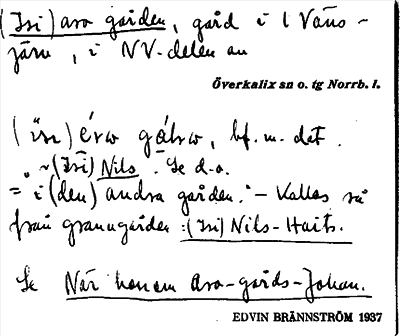 (Isi) ara gården, gård i l Väns-
järv, i NV-delen av
Överkalix sn o. tg Norrb. l.
bf. m. dat.
(Isi) Nils. Se d.o.
= i (den) andra gården." – Kallas så
från granngården :(Isi) Nils-Haits.
Se När honom Ara-gårds-Johan.
EDVIN BRÄNNSTRÖM 1937